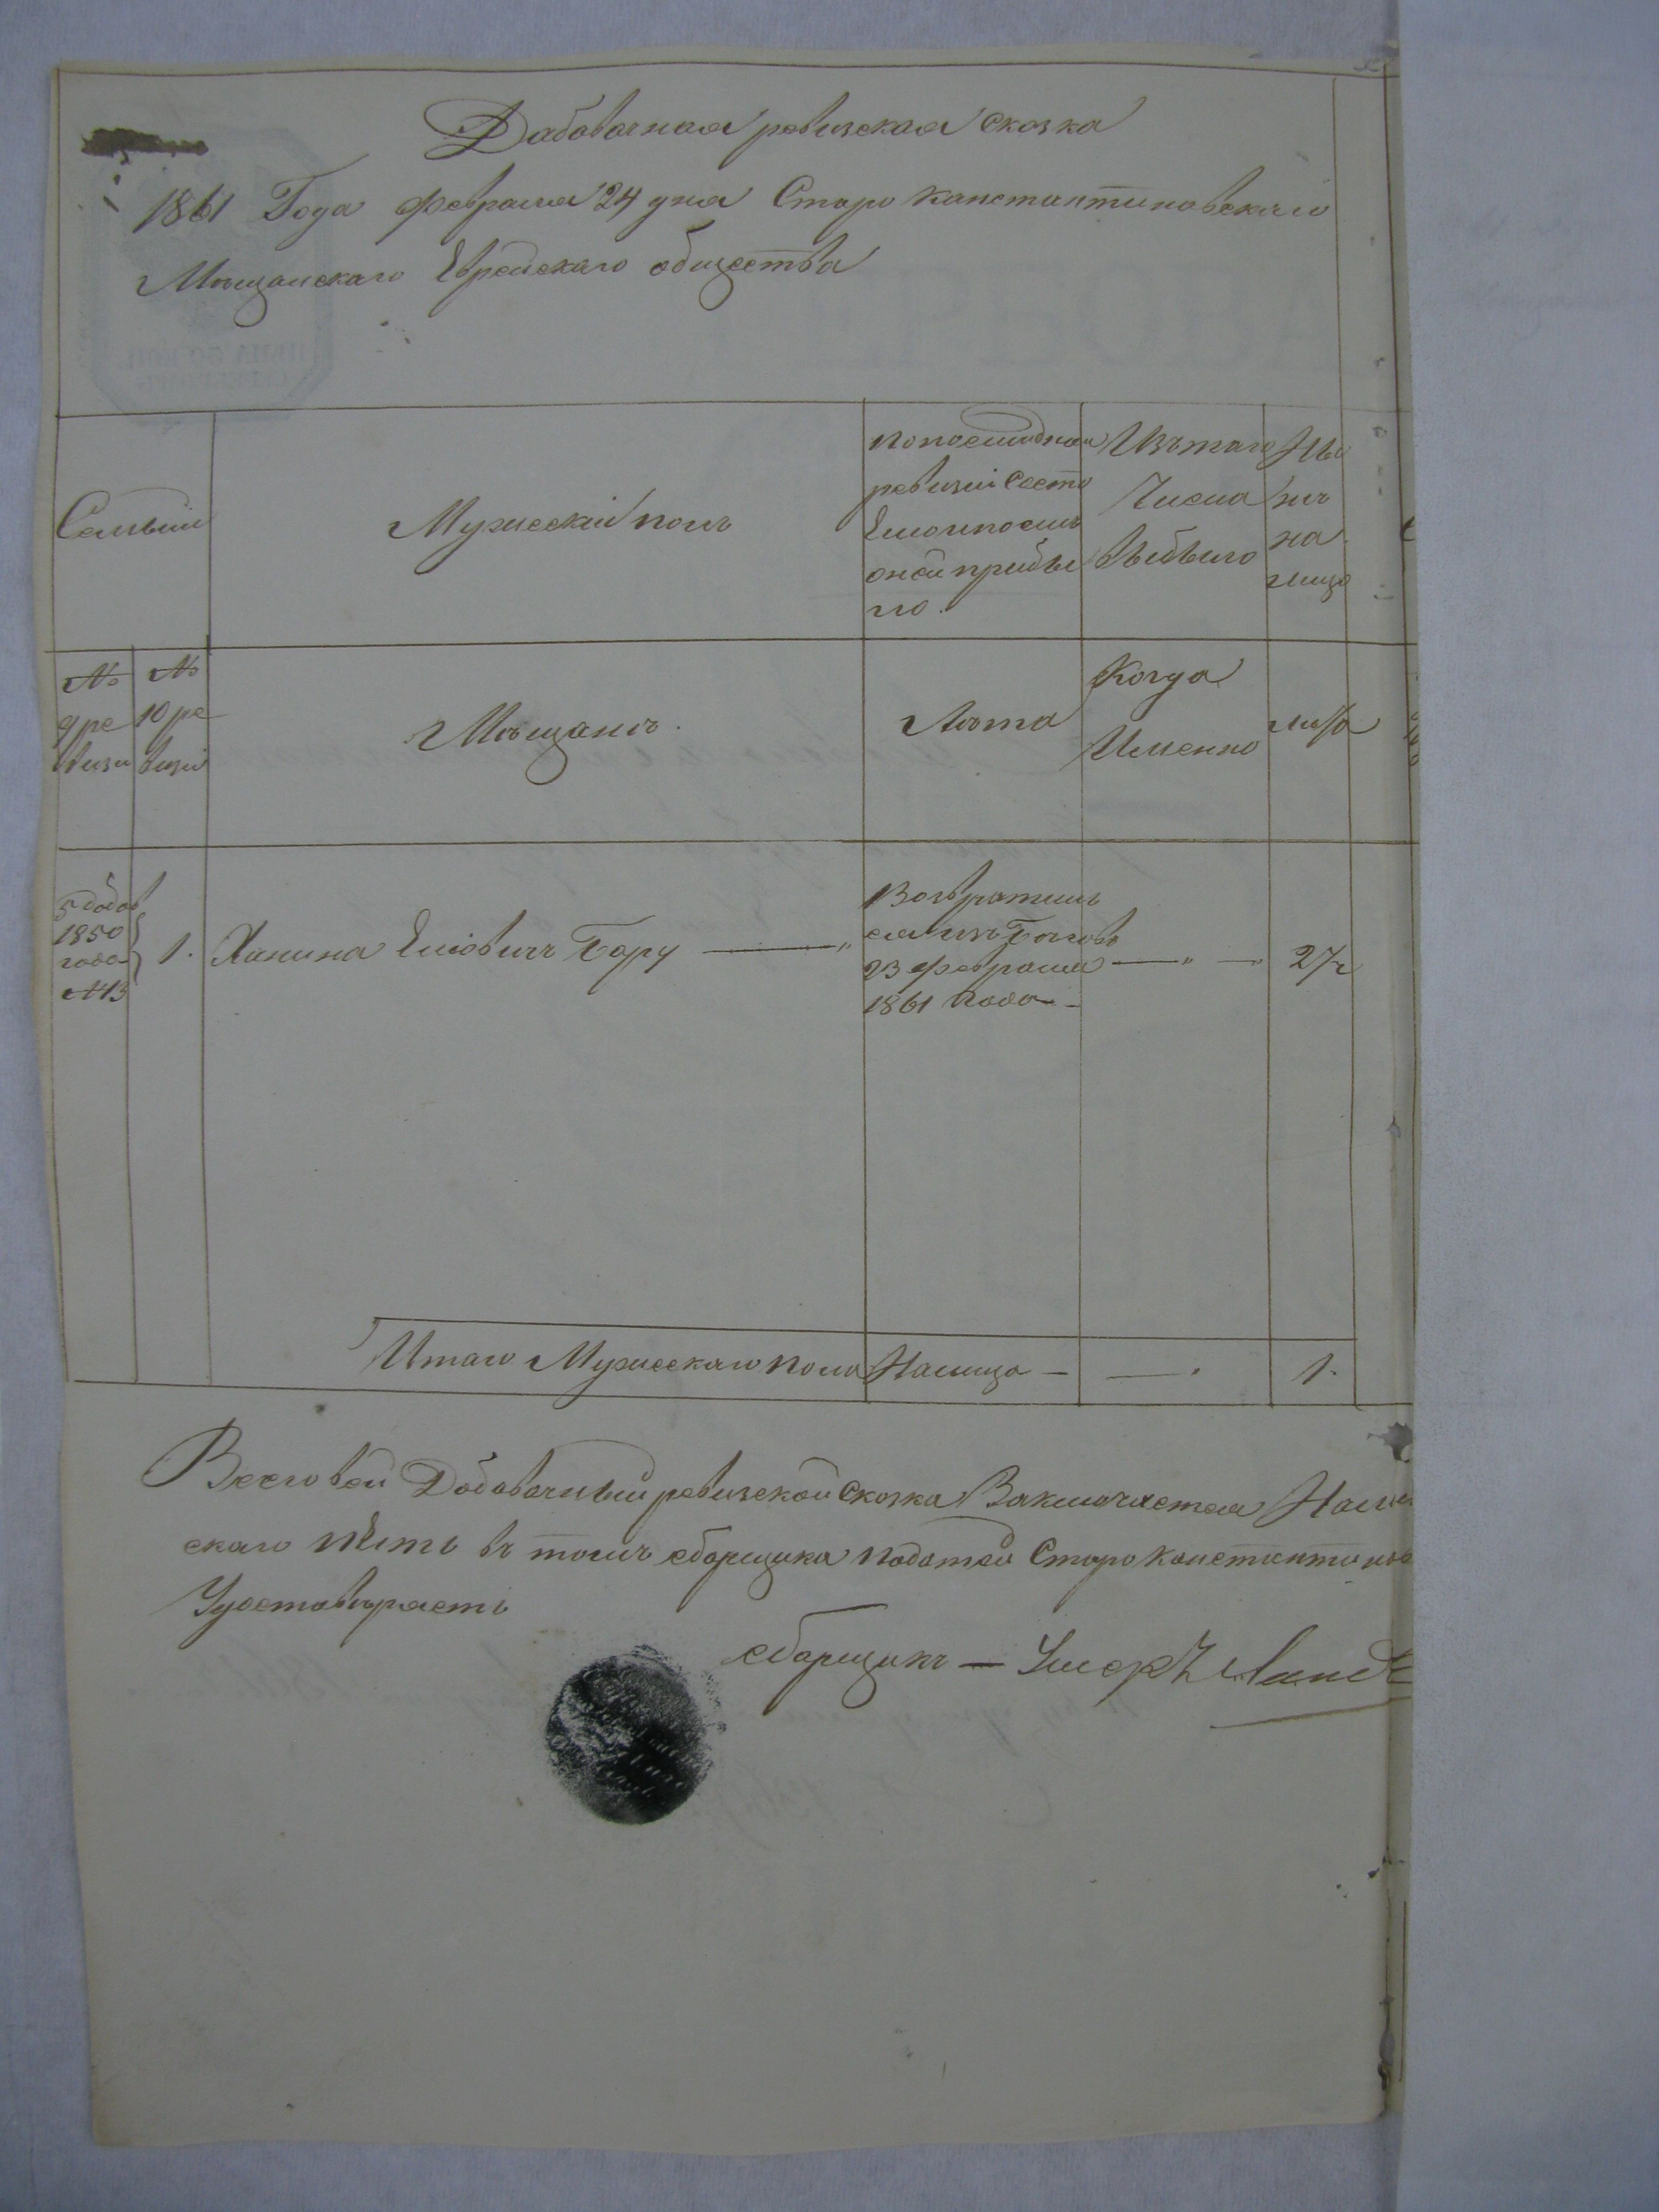 Дабовочная ревизская сказка
1861 Года февраля 24 дня Старо Канстантиновскаго
Мѣщанскаго Еврейскаго общества
Семьии
Мужескій полъ
по последней
ревизіи Состо
яло и после
оной прибы
ло.
Изъ таго
Числа
выбыло
Ны
нѣ
на
лицо
№
9 ре
визи
№
10 ре
визіи
Мѣщанъ.
Лѣта
Когда
Именно
лѣта
5 добав
1850
года
№13
1.
Ханина Елiовичъ Бару
Возвратил
ся изъ Бѣговъ
23 февраля
1861 Года
27
Итаго Мужескаго пола
Налицо
1.
Всего въ сей Добавочный ревизской сказка Заключается
скаго въ томъ сборщика податей Старо Константинов
Удостовѣряетъ
сборщикъ —